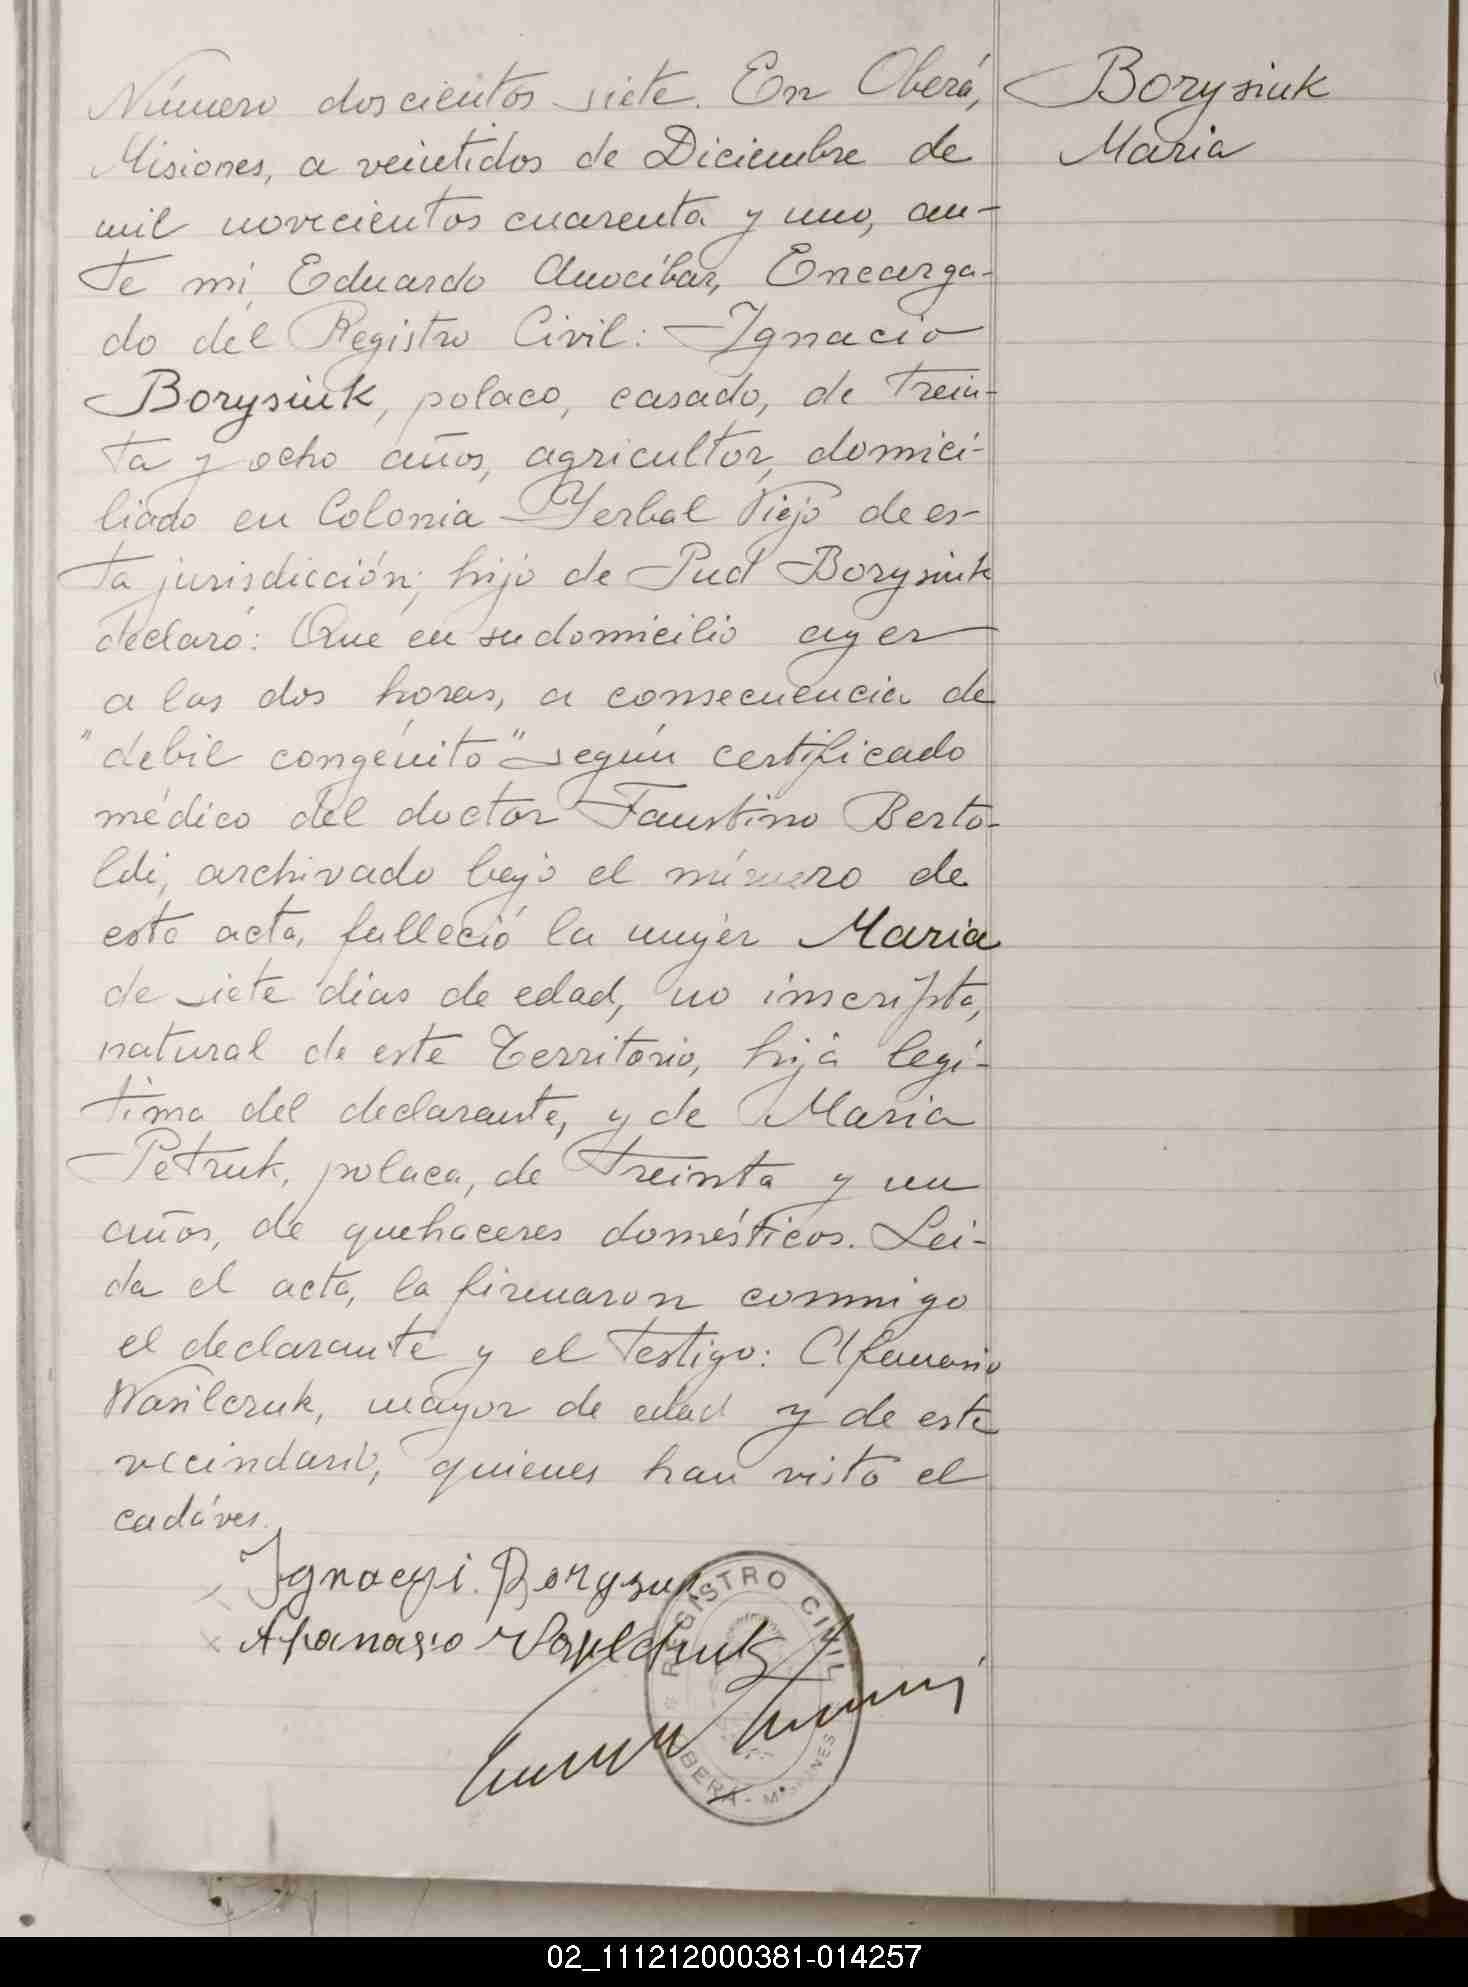 Número doscientos siete. En Oberá,
Borysiuk
Misiones, a veintidos de Diciembre de
Maria
mil novecientos cuarenta y uno, an-
te mi, Eduardo Anocíbar, Encarga-
do del Registro Civil: Ignacio
Borysiuk, polaco, casado, de trein-
ta y ocho años, agricultor, domici-
liado en Colonia Yerbal Viejo de es-
ta jurisdicción; hijo de Pud Borysiuk
declaró: Que en su domicilio ayer
a las dos horas, a consecuencia de
"debil congénito" según certificado
médico del doctor Faustino Berto-
ldi, archivado bajo el número de
esta acta, falleció la mujer Maria
de siete dias de edad, no inscripta,
natural de este Territorio, hija legí-
tima del declarante, y de Maria
Petruk, polaca, de treinta y un
años, de quehaceres domésticos. Lei-
da el acta, la firmaron conmigo
el declarante y el testigo: Afanasio
Wasilczuk, mayor de edad y de este
vecindario, quienes han visto el
cadáver.
Ignacyi Borysiu
Afanasio
REGISTRO CIVIL
OBERÁ - MISIONES
02_111212000381-014257